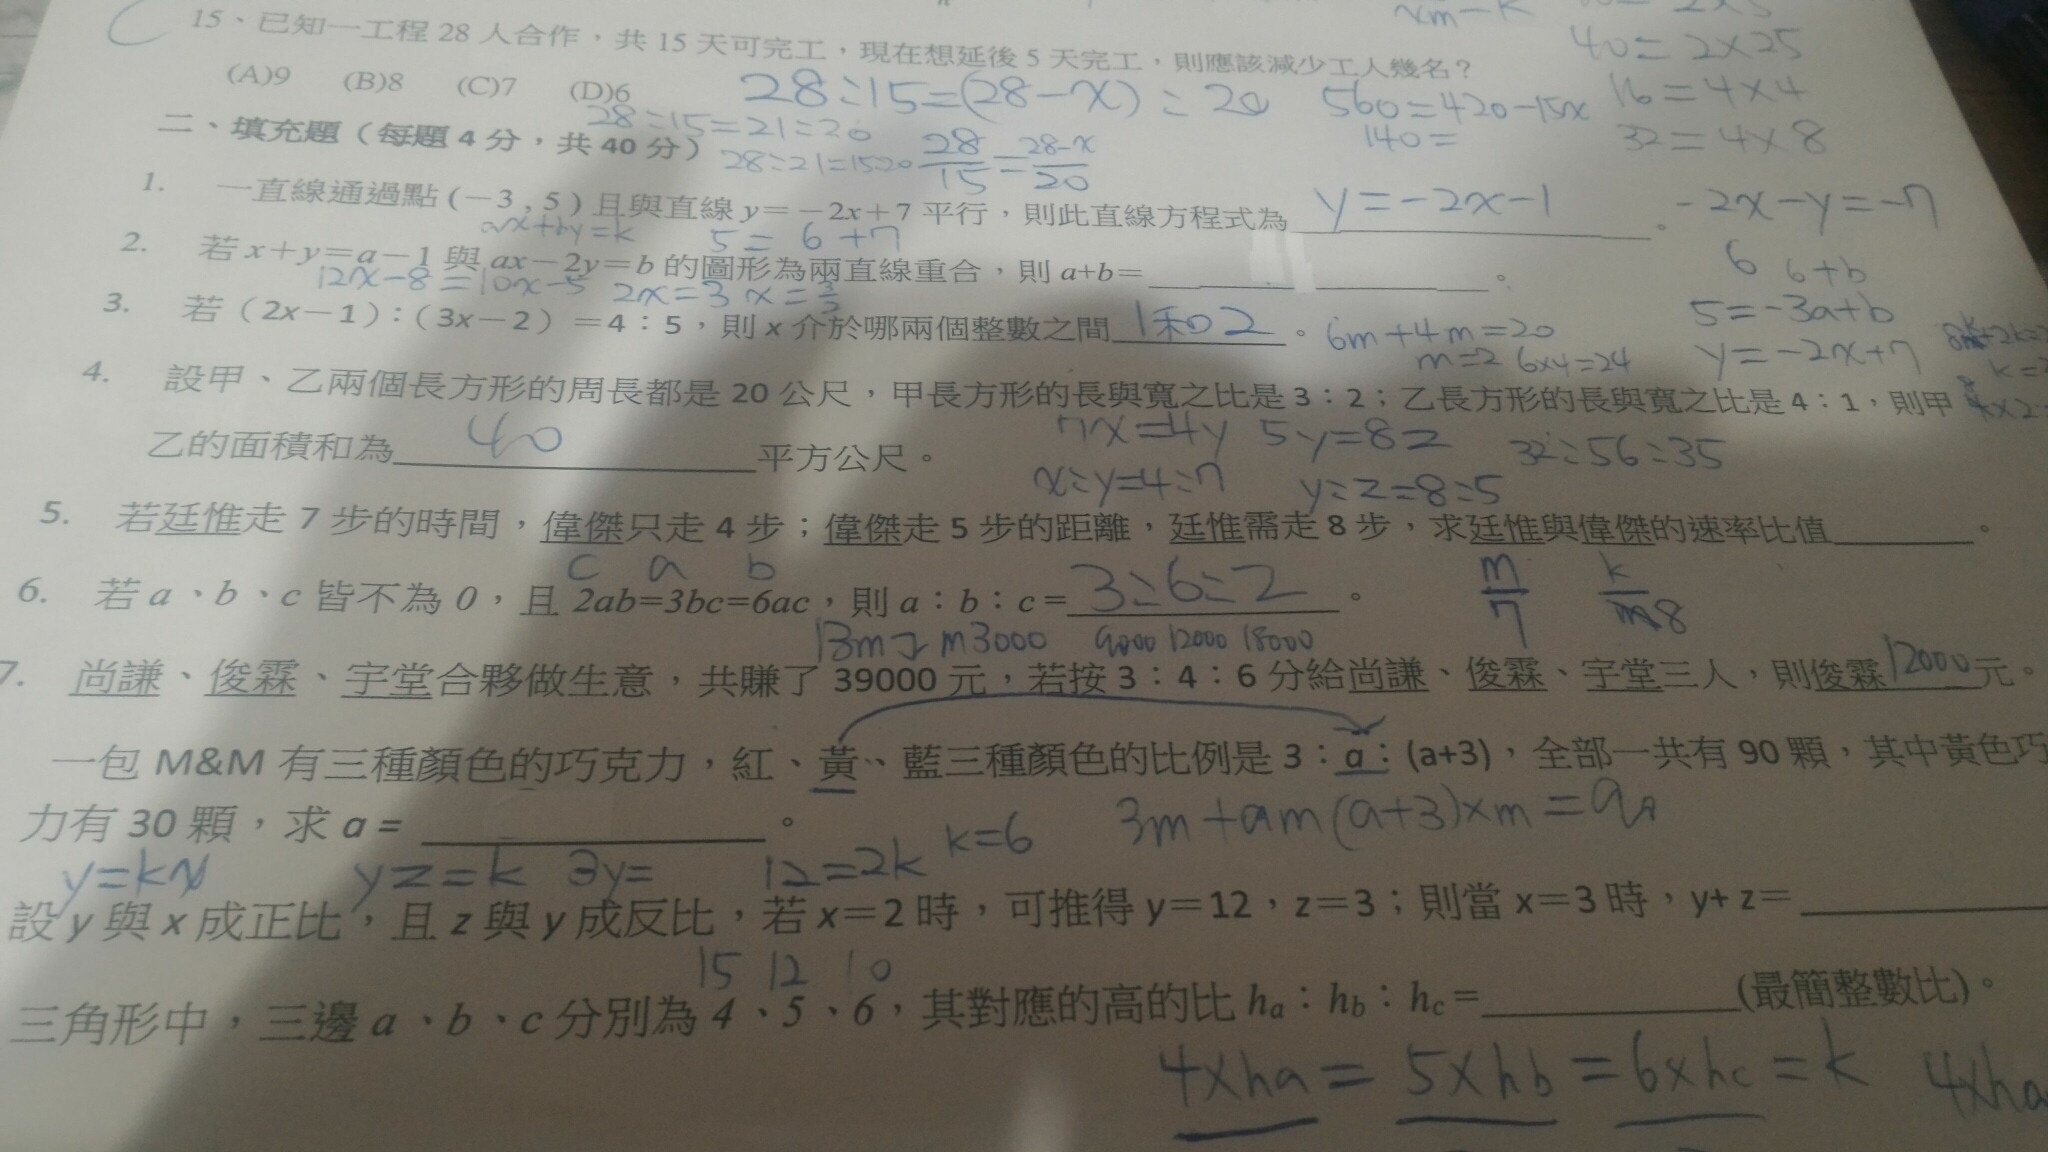 xm-k
40=2×25
15、已知一工程 28 人合作，共 15 天可完工，現在想延後 5 天完工，則應該減少工人幾名？
(A)9 (B)8 (C)7 (D)6
28:15=(28-x):20 560=420-15x 16=4×4
28:15=21:20 140= 32=4×8
二、填充題（每題 4 分，共 40 分）
28:21=15:20 28/15=28-x/20
1. 一直線通過點 (-3 , 5 ) 且與直線 y=-2x+7 平行，則此直線方程式為 y=-2x-1 。 -2x-y=-7
ax+by=k 5= 6+7
2. 若 x+y=a-1 與 ax-2y=b 的圖形為兩直線重合，則 a+b= 。 6 6+b
12x-8=10x-5 2x=3 x=3/2 5=-3a+b
3. 若（2x-1）:（3x-2）=4：5，則 x 介於哪兩個整數之間 1和2 。 6m+4m=20
m=2 6×4=24 y=-2x+7
4. 設甲、乙兩個長方形的周長都是 20 公尺，甲長方形的長與寬之比是 3：2；乙長方形的長與寬之比是 4：1，則甲
乙的面積和為 40 平方公尺。
7x=4y 5y=8z 32:56:35
x:y=4:7 y:z=8:5
5. 若廷惟走 7 步的時間，偉傑只走 4 步；偉傑走 5 步的距離，廷惟需走 8 步，求廷惟與偉傑的速率比值 。
c a b m/7
6. 若 a、b、c 皆不為 0，且 2ab=3bc=6ac，則 a：b：c= 3:6:2 。
m3000 9000 12000 18000
7. 尚謙、俊霖、宇堂合夥做生意，共賺了 39000 元，若按 3：4：6 分給尚謙、俊霖、宇堂三人，則俊霖 12000 元。
一包 M&M 有三種顏色的巧克力，紅、黃、藍三種顏色的比例是 3：a：(a+3)，全部一共有 90 顆，其中黃色巧
力有 30 顆，求 a = 。
3m+am(a+3)×m=90
y=kx yz=k 3y= 12=2k k=6
設 y 與 x 成正比，且 z 與 y 成反比，若 x=2 時，可推得 y=12，z=3；則當 x=3 時，y+ z=
15 12 10
三角形中，三邊 a、b、c 分別為 4、5、6，其對應的高的比 ha：hb：hc= (最簡整數比)。
4×ha=5×hb=6×hc=k 4×ha